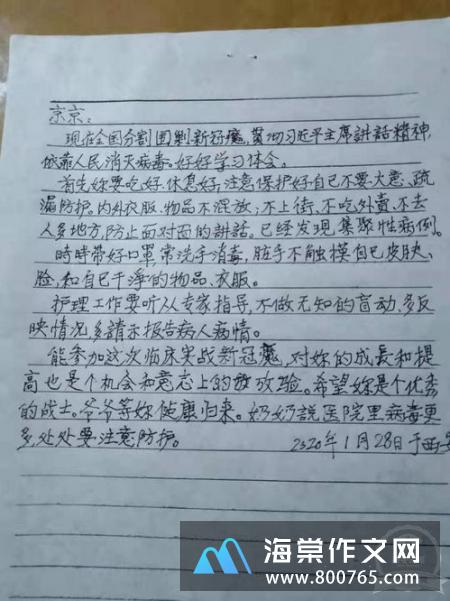 京京：
现在全国分割围剿新冠魔，贯彻习近平主席講話精神，
依靠人民消灭病毒。好好学习体会。
首先妳要吃好，休息好，注意保护好自己不要大意、疏
漏防护。内外衣服、物品不混放；不上街、不吃外賣、不去
人多地方，防止面对面的講話。已经发现集聚性病例。
時時帶好口罩常洗手消毒，脏手不触摸自已皮肤、
脸，和自已干淨的物品、衣服。
护理工作要听从专家指导，不做无知的盲动，多反
映情况多請示报告病人病情。
能参加这次临床实战新冠魔，对妳的成長和提
高也是个机会和意志上的 考验。希望妳是个优秀
的战士。爷爷等妳健康归来。奶奶説医院里病毒更
多，处处要注意防护。
2020年1月28日于西安
海棠作文网
www.800765.com